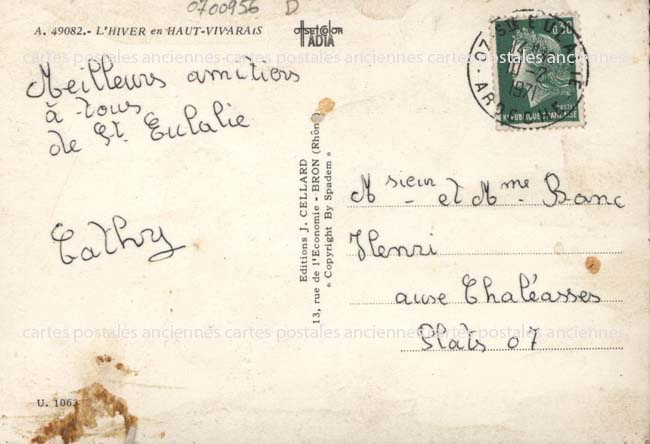 0700956 D
A. 49082.- L'HIVER en HAUT-VIVARAIS
offset color
IADIA
Meilleurs amitiers
à tous
de St. Eulalie
Cathy
Editions J. CELLARD
13, rue de l'Economie - BRON (Rhône)
« Copyright By Spadem »
0,30
07 STE EULALIE
1971
ARDECHE
POSTES
REPUBLIQUE FRANÇAISE
Msieur et Mme Banc
Henri
ause Chaléasses
Plats 07
cartes postales anciennes cartes postales anciennes cartes postales anciennes cartes postales anciennes
cartes postales anciennes cartes postales anciennes cartes postales anciennes cartes postales anciennes
U. 1063